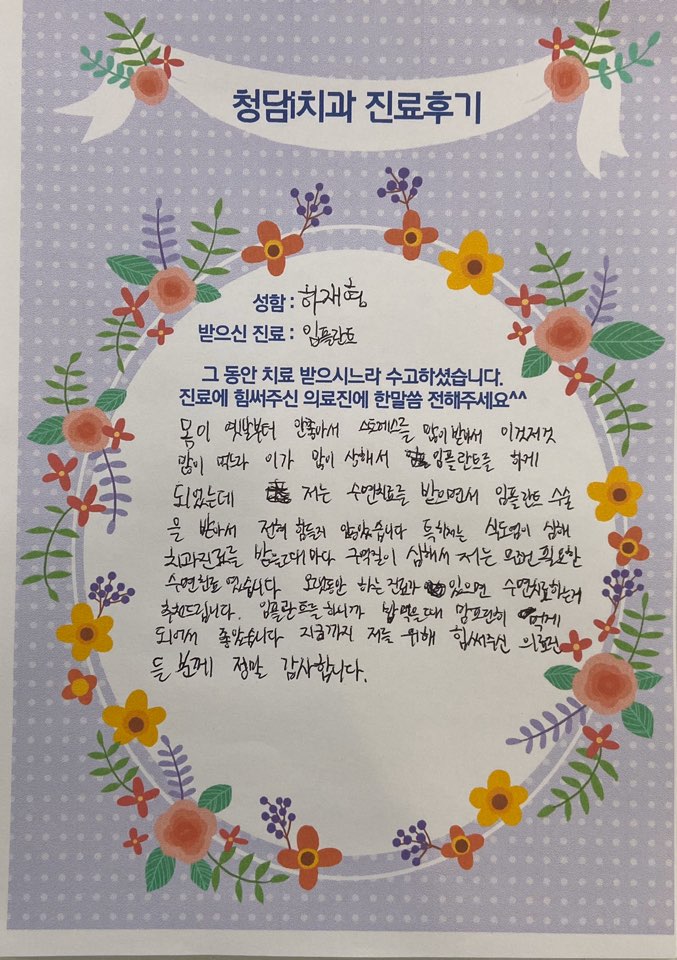 청담i치과 진료후기
성함 : 허재혁
받으신 진료 : 임플란트
그 동안 치료 받으시느라 수고하셨습니다.
진료에 힘써주신 의료진에 한말씀 전해주세요^^
몸이 옛날부터 안좋아서 스트레스를 많이 받아서 이것저것
많이 먹느라 이가 많이 삭해서 임플란트를 하게
되었는데 저는 수면치료를 받으면서 임플란트 수술
을 받아서 전혀 힘들지 않았습니다 특히 저는 식도염이 심해
치과진료를 받을때마다 구역질이 심해서 저는 필요한
수면치료 였습니다 오랫동안 하는 진료가 있으면 수면치료하는거
추천드립니다. 임플란트를 하니까 밥먹을때 맘편히 먹게
되어서 좋았습니다 지금까지 저를 위해 힘써주신 의료진
들 분께 정말 감사합니다.